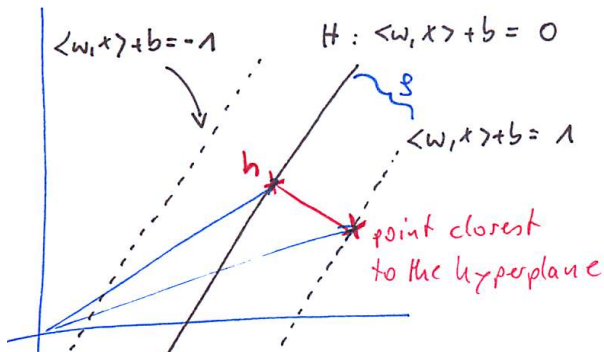 <w,x>+b=-1
H: <w,x>+b = 0
ρ
<w,x>+b = 1
h
point closest
to the hyperplane